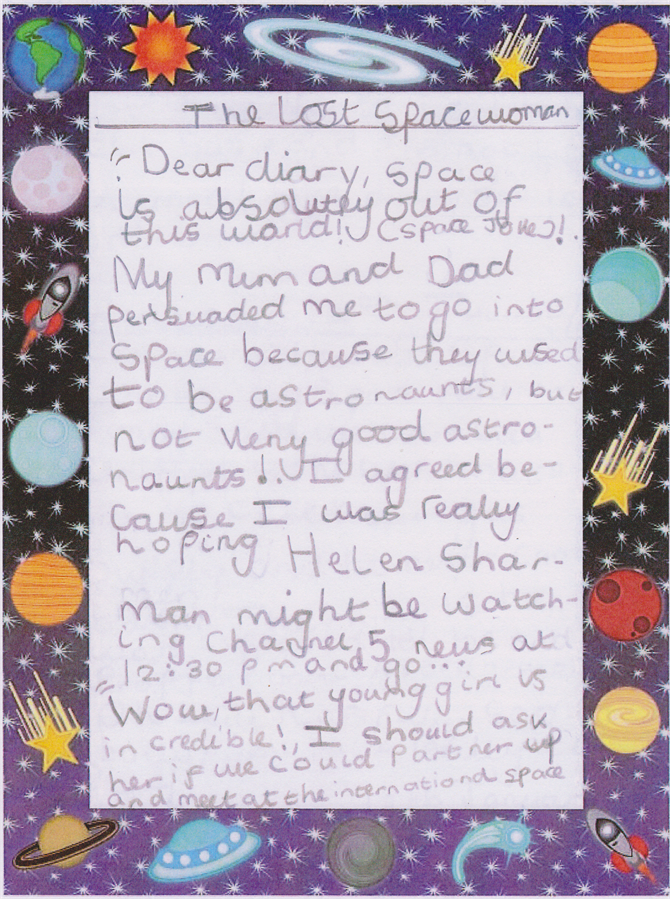 The Lost Spacewoman
"Dear diary, space
is absolutely out of
this world! (space Joke)!.
My Mum and Dad
persuaded me to go into
space because they used
to be astronaunts, but
not very good astro-
naunts!. I agreed be-
cause I was really
hoping Helen Shar-
man might be watch-
ing Channel 5 news at
12:30 pm and go...
"Wow, that young girl is
incredible!, I should ask
her if we could partner up
and meet at the international space